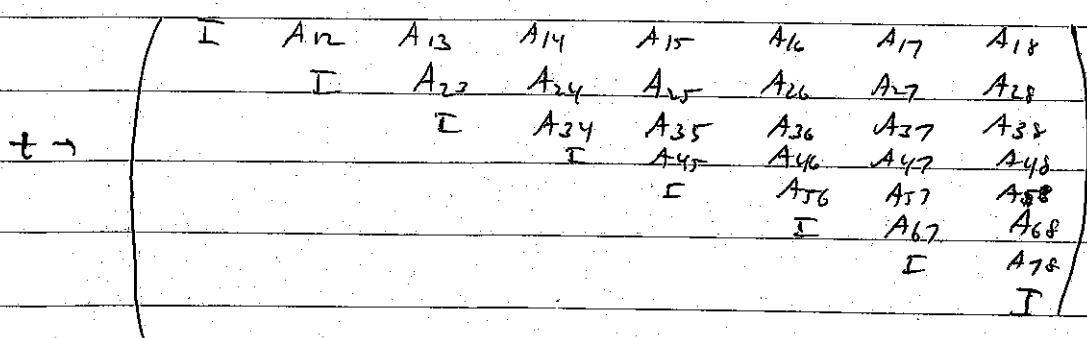 I A12 A13 A14 A15 A16 A17 A18
I A23 A24 A25 A26 A27 A28
I A34 A35 A36 A37 A38
t → I A45 A46 A47 A48
I A56 A57 A58
I A67 A68
I A78
I